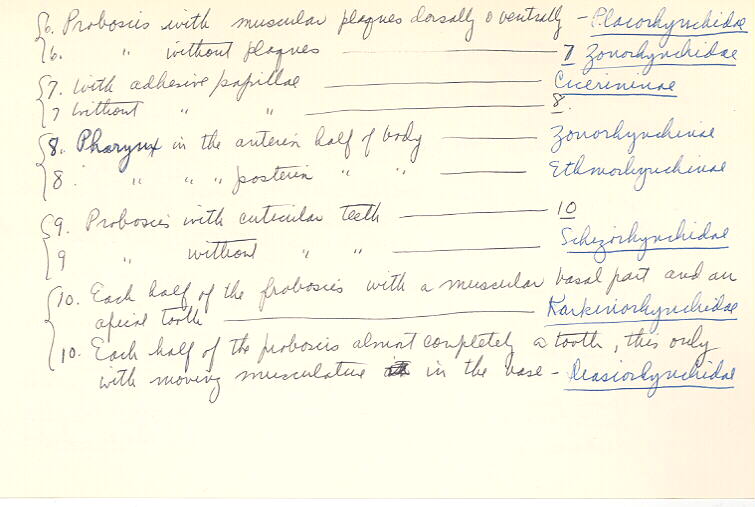 6. Proboscis with muscular plaques dorsally & ventrally - Placorhynchidae
6. " without plaques 7 Zonorhynchidae
7. with adhesive papillae Cicerininae
7 without " " 8.
8. Pharynx in the anterior half of body Zonorhynchinae
8. " " " posterior " " Ethmorhynchinae
9. Proboscis with cuticular teeth 10
9 " without " " Schizorhynchidae
10. Each half of the proboscis with a muscular basal part and an
apical tooth Karkinorhynchidae
10. Each half of the proboscis almost completely a tooth, this only
with moving musculature in the base -